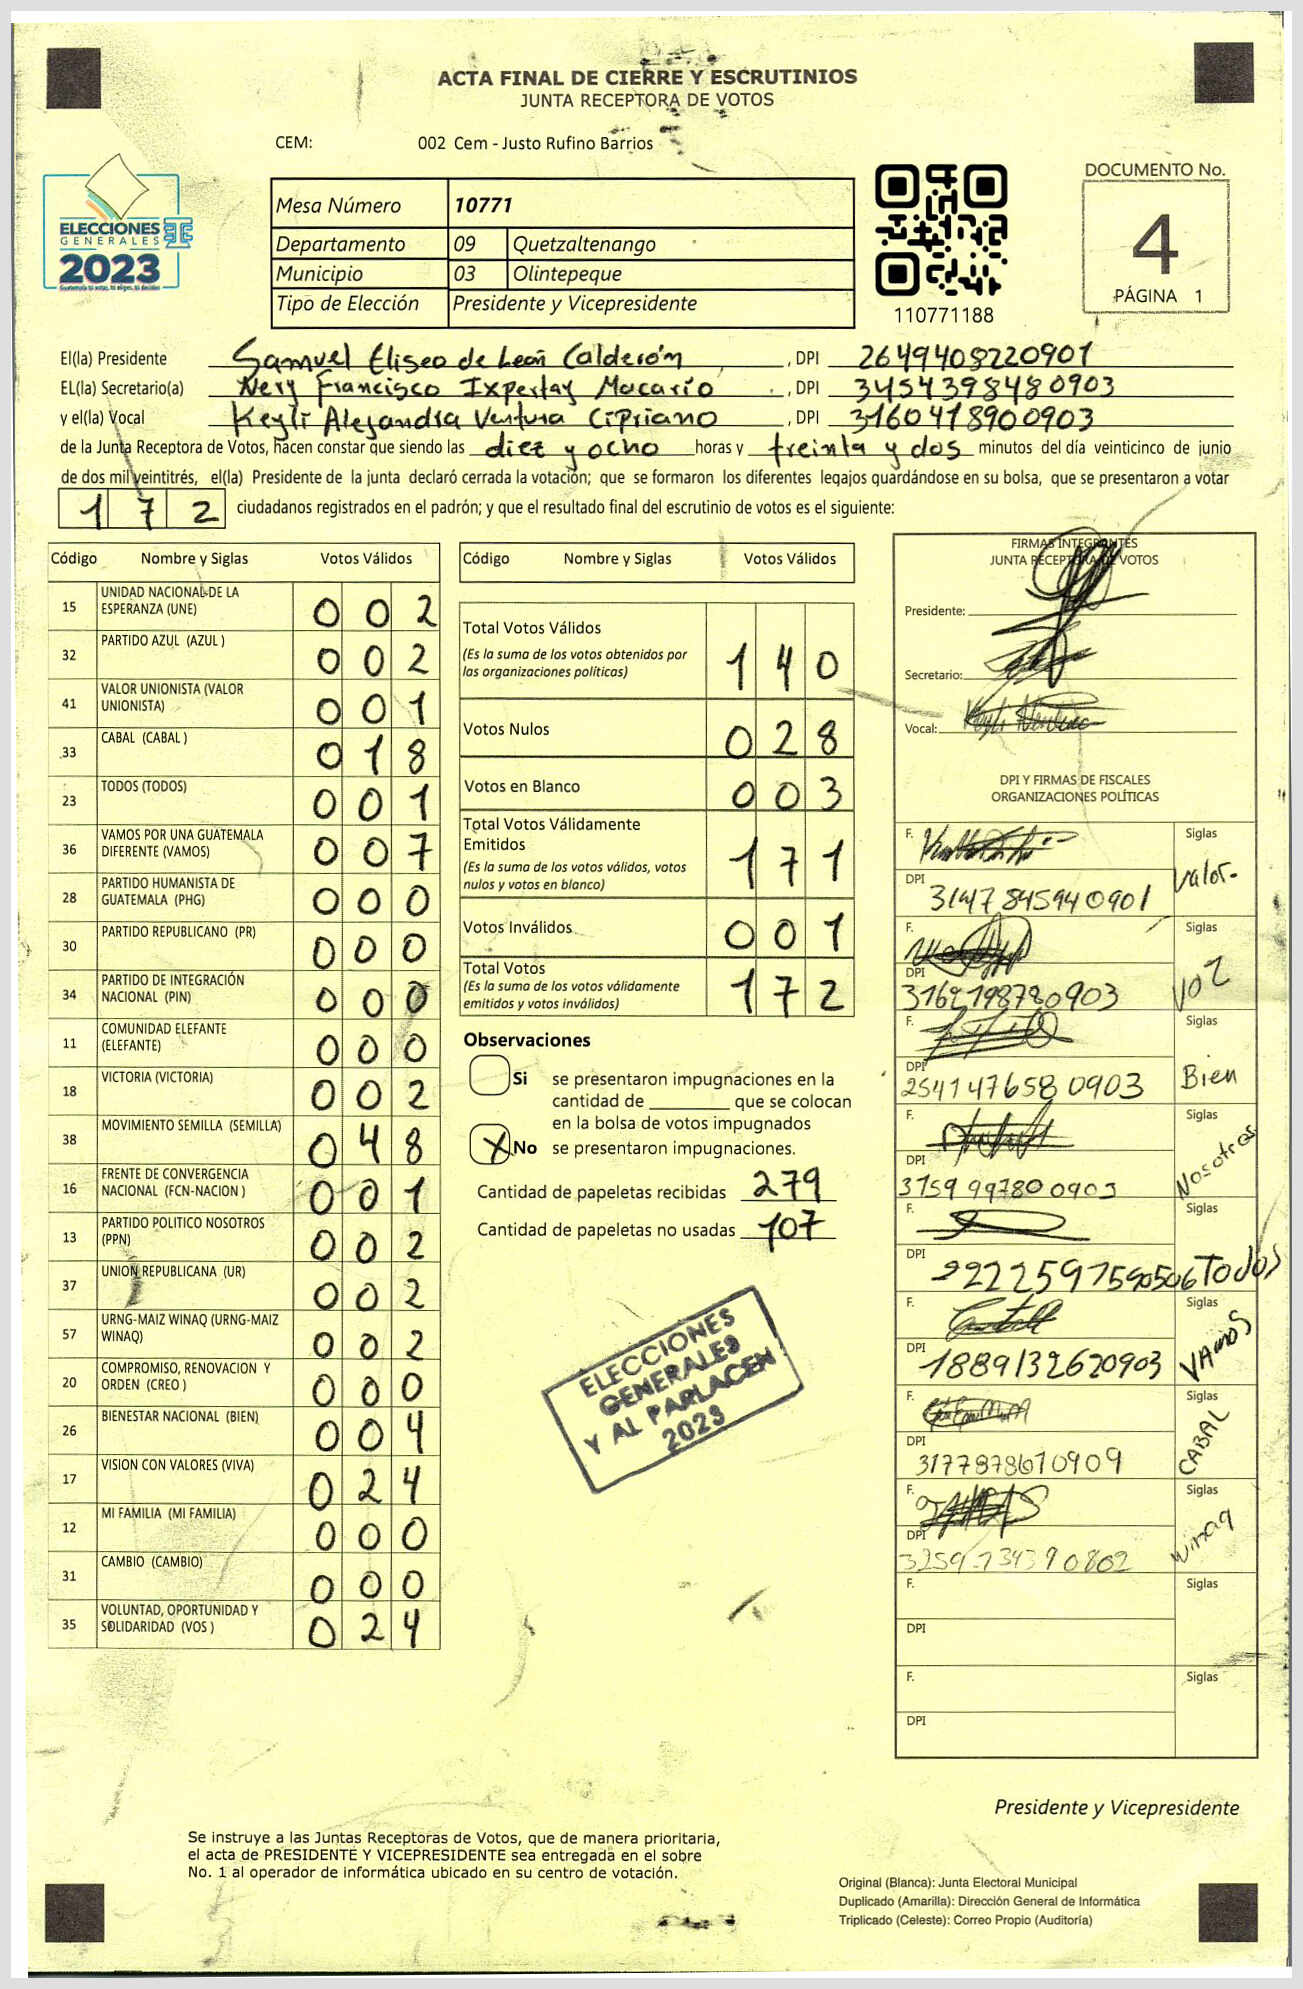 ACTA FINAL DE CIERRE Y ESCRUTINIOS
JUNTA RECEPTORA DE VOTOS
CEM: 002 Cem - Justo Rufino Barrios
ELECCIONES
GENERALES
2023
Mesa Número 10771
Departamento 09 Quetzaltenango
Municipio 03 Olintepeque
Tipo de Elección Presidente y Vicepresidente
110771188
DOCUMENTO No.
4
PÁGINA 1
El(la) Presidente Samuel Eliseo de León Calderón, DPI 2649408220901
EL(la) Secretario(a) Nery Francisco Ixpertay Macario, DPI 3454398480903
y el(la) Vocal Keyli Alejandra Ventura Cipriano, DPI 3160418900903
de la Junta Receptora de Votos, hacen constar que siendo las diez y ocho horas y treinta y dos minutos del día veinticinco de junio
de dos mil veintitrés, el(la) Presidente de la junta declaró cerrada la votación; que se formaron los diferentes legajos guardándose en su bolsa, que se presentaron a votar
172 ciudadanos registrados en el padrón; y que el resultado final del escrutinio de votos es el siguiente:
Código Nombre y Siglas Votos Válidos
15 UNIDAD NACIONAL DE LA ESPERANZA (UNE) 002
32 PARTIDO AZUL (AZUL ) 002
41 VALOR UNIONISTA (VALOR UNIONISTA) 001
33 CABAL (CABAL ) 018
23 TODOS (TODOS) 001
36 VAMOS POR UNA GUATEMALA DIFERENTE (VAMOS) 007
28 PARTIDO HUMANISTA DE GUATEMALA (PHG) 000
30 PARTIDO REPUBLICANO (PR) 000
34 PARTIDO DE INTEGRACIÓN NACIONAL (PIN) 000
11 COMUNIDAD ELEFANTE (ELEFANTE) 000
18 VICTORIA (VICTORIA) 002
38 MOVIMIENTO SEMILLA (SEMILLA) 048
16 FRENTE DE CONVERGENCIA NACIONAL (FCN-NACION ) 001
13 PARTIDO POLITICO NOSOTROS (PPN) 002
37 UNION REPUBLICANA (UR) 002
57 URNG-MAIZ WINAQ (URNG-MAIZ WINAQ) 002
20 COMPROMISO, RENOVACION Y ORDEN (CREO ) 000
26 BIENESTAR NACIONAL (BIEN) 004
17 VISION CON VALORES (VIVA) 024
12 MI FAMILIA (MI FAMILIA) 000
31 CAMBIO (CAMBIO) 000
35 VOLUNTAD, OPORTUNIDAD Y SOLIDARIDAD (VOS ) 024
Código Nombre y Siglas Votos Válidos
Total Votos Válidos 140
(Es la suma de los votos obtenidos por
las organizaciones políticas)
Votos Nulos 028
Votos en Blanco 003
Total Votos Válidamente
Emitidos 171
(Es la suma de los votos válidos, votos
nulos y votos en blanco)
Votos Inválidos 001
Total Votos 172
(Es la suma de los votos válidamente
emitidos y votos inválidos)
Observaciones
Si se presentaron impugnaciones en la
cantidad de ________ que se colocan
en la bolsa de votos impugnados
X No se presentaron impugnaciones.
Cantidad de papeletas recibidas 279
Cantidad de papeletas no usadas 107
ELECCIONES
GENERALES
Y AL PARLACEN
2023
FIRMAS INTEGRANTES
JUNTA RECEPTORA DE VOTOS
Presidente:
Secretario:
Vocal:
DPI Y FIRMAS DE FISCALES
ORGANIZACIONES POLÍTICAS
F. Siglas Valor
DPI 3147845940901
F. Siglas VOZ
DPI 3162198780903
F. Siglas Bien
DPI 2541476580903
F. Siglas Nosotros
DPI 3159997800903
F. Siglas TODOS
DPI 2222597590506
F. Siglas VAMOS
DPI 1889132620903
F. Siglas CABAL
DPI 3177878610909
F. Siglas Winaq
DPI
F. Siglas
DPI
F. Siglas
DPI
Presidente y Vicepresidente
Se instruye a las Juntas Receptoras de Votos, que de manera prioritaria,
el acta de PRESIDENTE Y VICEPRESIDENTE sea entregada en el sobre
No. 1 al operador de informática ubicado en su centro de votación.
Original (Blanca): Junta Electoral Municipal
Duplicado (Amarilla): Dirección General de Informática
Triplicado (Celeste): Correo Propio (Auditoría)